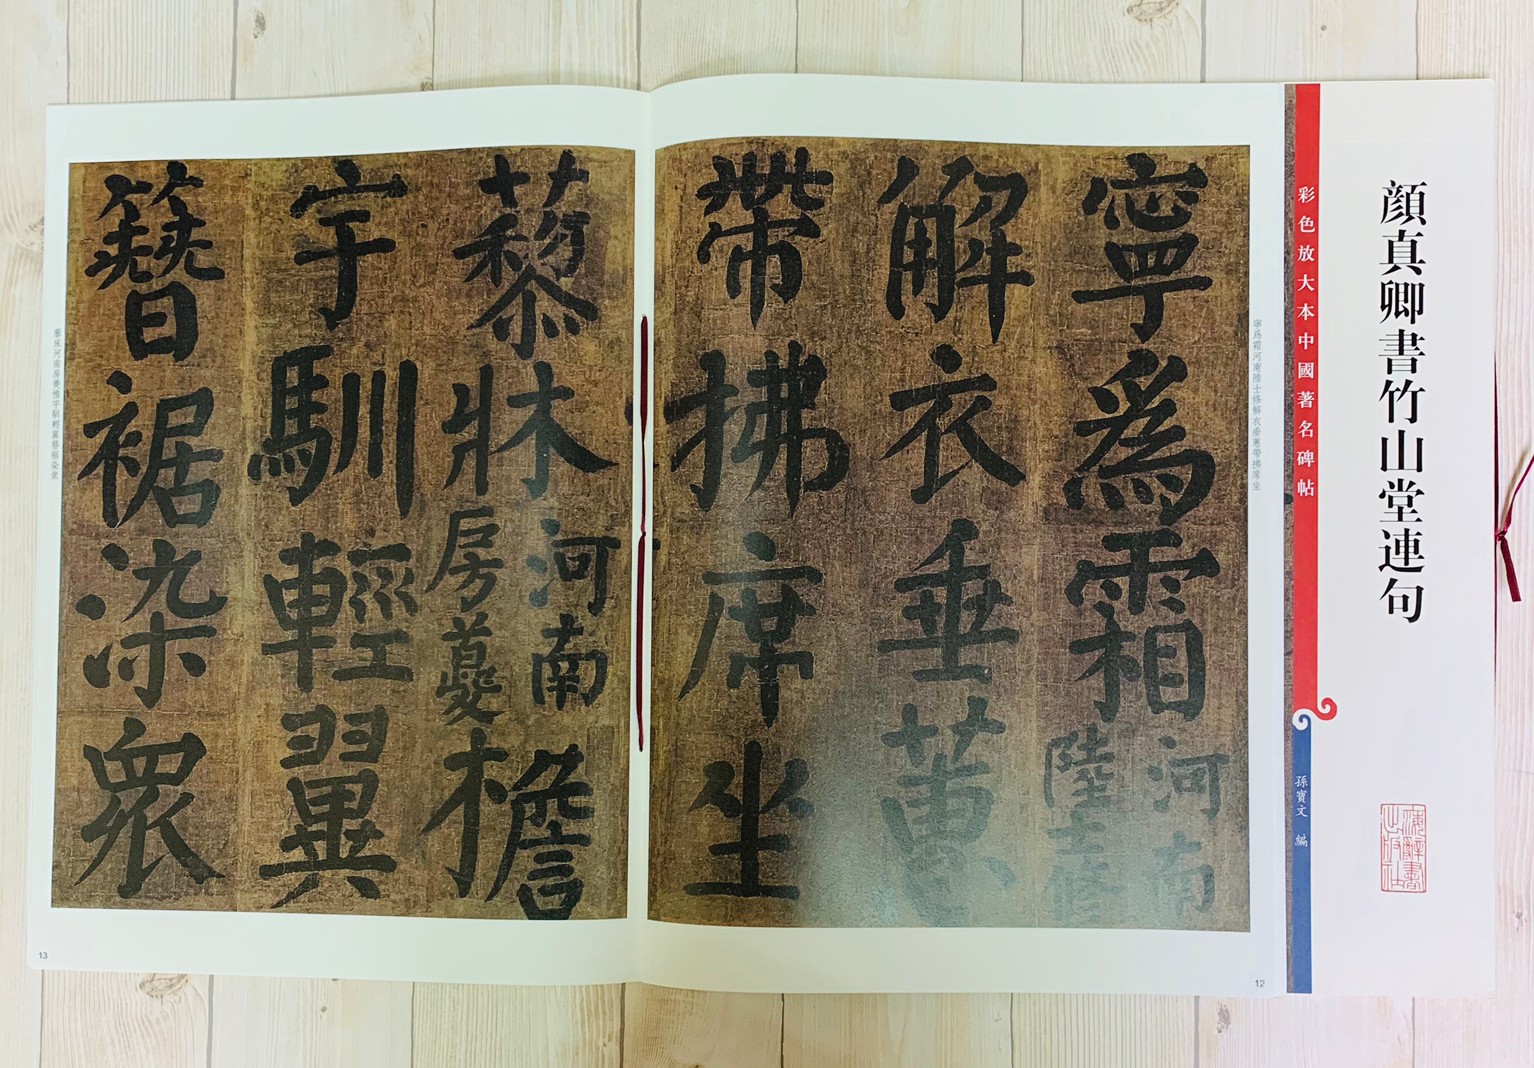 顔真卿書竹山堂連句
彩色放大本中國著名碑帖
孫寶文 編
寧爲霜河南陸士修解衣垂蕙帶拂席坐
寧爲霜
河南
陸士修
解衣垂蕙
帶拂席坐
12
藜牀
河南
房夔
檐
宇馴輕翼
簪裾染衆
藜床河南房夔檐宇馴輕翼簪裾染衆
13